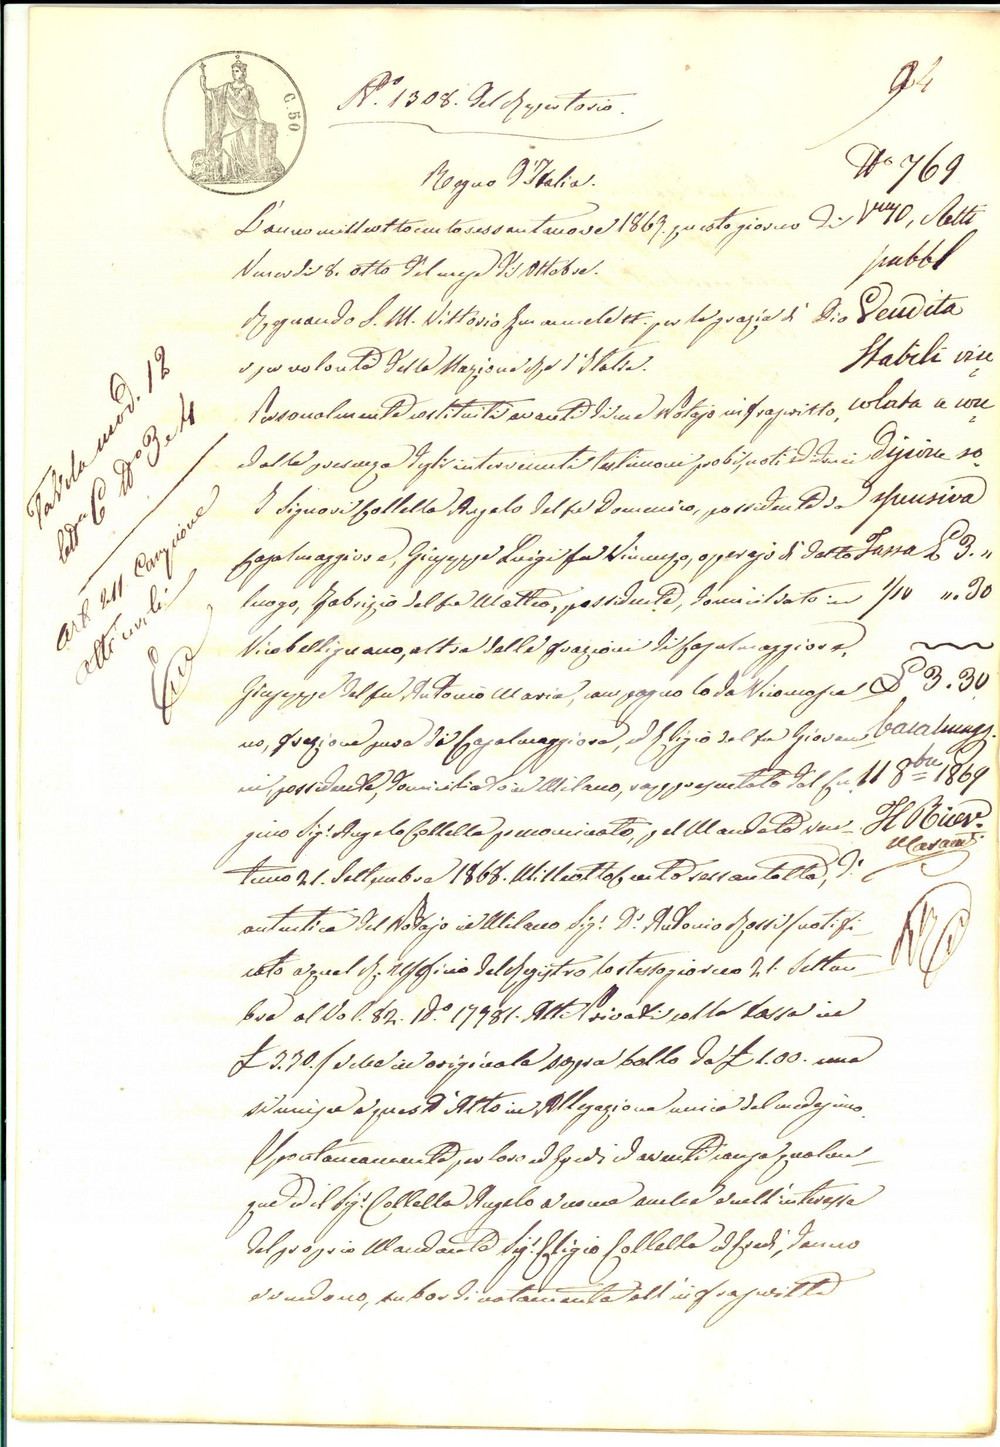 94
C. 50
N.º 1308. del Repertorio.
Regno d'Italia.
L'anno milleottocentosessantanove 1869. questo giorno di
Venerdì 8. otto del mese di Ottobre.
Regnando S. M. Vittorio Emanuele II. per la grazia di Dio
e per volontà della Nazione Re d'Italia.
Personalmente costituiti avanti di me Notajo infrascritto,
e dalla presenza degli intervenuti Testimonj probi, noti ed idonei
I Signori Collella Angelo del fu Domenico, possidente da
Casalmaggiore, Giuseppe Luigi fu Vincenzo, operajo di detto
luogo, Fabrizio del fu Matteo, possidente, domiciliato in
Vicobellignano, altra delle frazioni di Casalmaggiore,
Giuseppe del fu Antonio Maria, campagnolo da Vicomosca
no, frazione pure di Casalmaggiore, ed Eligio del fu Giovan
ni, possidente, domiciliato in Milano, rappresentato dal Cu
gino Sig.r Angelo Collella prenominato, pel Mandato
21. Settembre 1868. Milleottocentosessantotto, di
autentica del Notajo in Milano Sig.r D.r Antonio Rossi, notifi
cato a quel R. Ufficio del Registro lo stesso giorno 21. Settem
bre al Vol. 82. N.º 17981. Atti Privati colla tassa in
£ 3.30. / che in originale sopra bollo da £ 1.00. una
si unisce a quest'Atto in Allegazione unica del medesimo.
Spontaneamente per loro ed Eredi ed aventi causa qualun-
que ed il Sig.r Collella Angelo a nome anche e nell'interesse
del proprio Mandante Sig.r Eligio Collella ed Eredi, danno
e vendono, subordinatamente all'infrascritta
N.º 769
V. 40, Atti
pubbl
Vendita
Stabili vin
colata a con
dizione so
spensiva
Tassa £ 3. "
1/10 ". 30
£ 3.30
Casalmagg.
11 8bre 1869
Il Ricev.
Tabella mod. 12
lett.a C N.º 3 e 4
Art. 211
atti civili